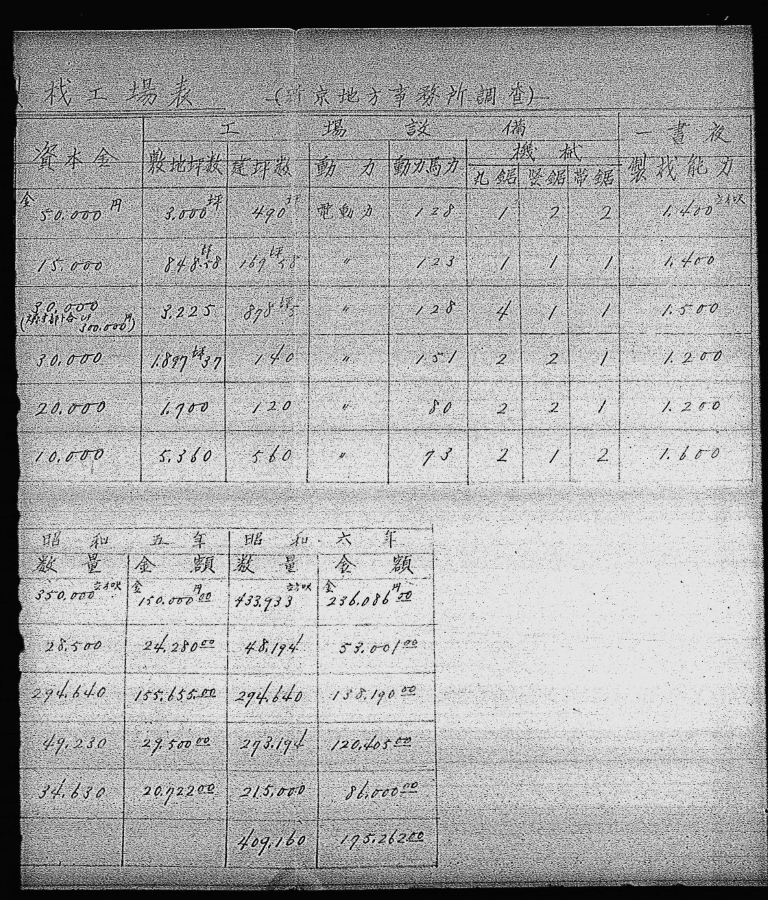 材工場表 (新京地方事務所調査)
資本金 工場設備 一晝夜製材能力
敷地坪数 建坪数 動力 動力馬力 機械
丸鋸 竪鋸 帯鋸
金50.000円 3.000坪 490坪 電動力 128 1 2 2 1.400立方呎
15.000 848坪58 169坪58 〃 123 1 1 1 1.400
30.000 3.225 878坪5 〃 128 4 1 1 1.500
300.000円)
30.000 1.897坪37 140 〃 151 2 2 1 1.200
20.000 1.700 120 〃 80 2 2 1 1.200
10.000 5.360 560 〃 73 2 1 2 1.600
昭和五年 昭和六年
数量 金額 数量 金額
350.000立方呎 金150.000円00 433.933立方呎 金236.086円00
28.500 24.28000 48.194 53.00100
294.640 155.655.00 294.640 138.19000
49.230 29.50000 273.194 120.40500
34.630 20.72200 215.000 86.00000
409.160 175.26200